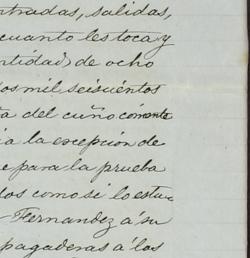 ntradas, salidas,
cuanto les toca y
ntidad de ocho
os mil seiscientos
ta del cuño corriente
ia la excepción de
e para la prueba
dos como si lo estu-
Fernandez á su
pagaderas á los